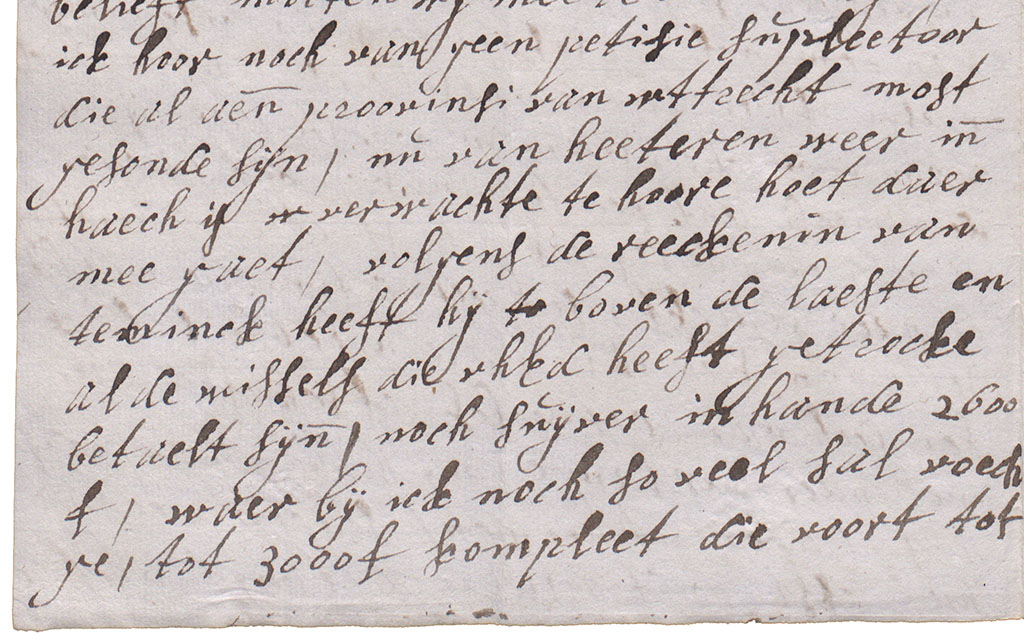 belieft moeten wij mee
ick hoor noch van geen petisie supleetoor
die al aen̄ proovinsi van uttrecht most
gesonde sijn, nŭ van heeteren weer in̄
haech is w verwachte te hoore hoet daer
mee gaet, volgens de reeckenin van
teminck heeft hij te boven de laeste en
al de wissels die vhEd heeft getrocke
betaelt sijn̄, noch sŭijver in hande 2600
f, waer bij ick noch so veel sal voech
ge, tot 3000f kompleet die voort tot